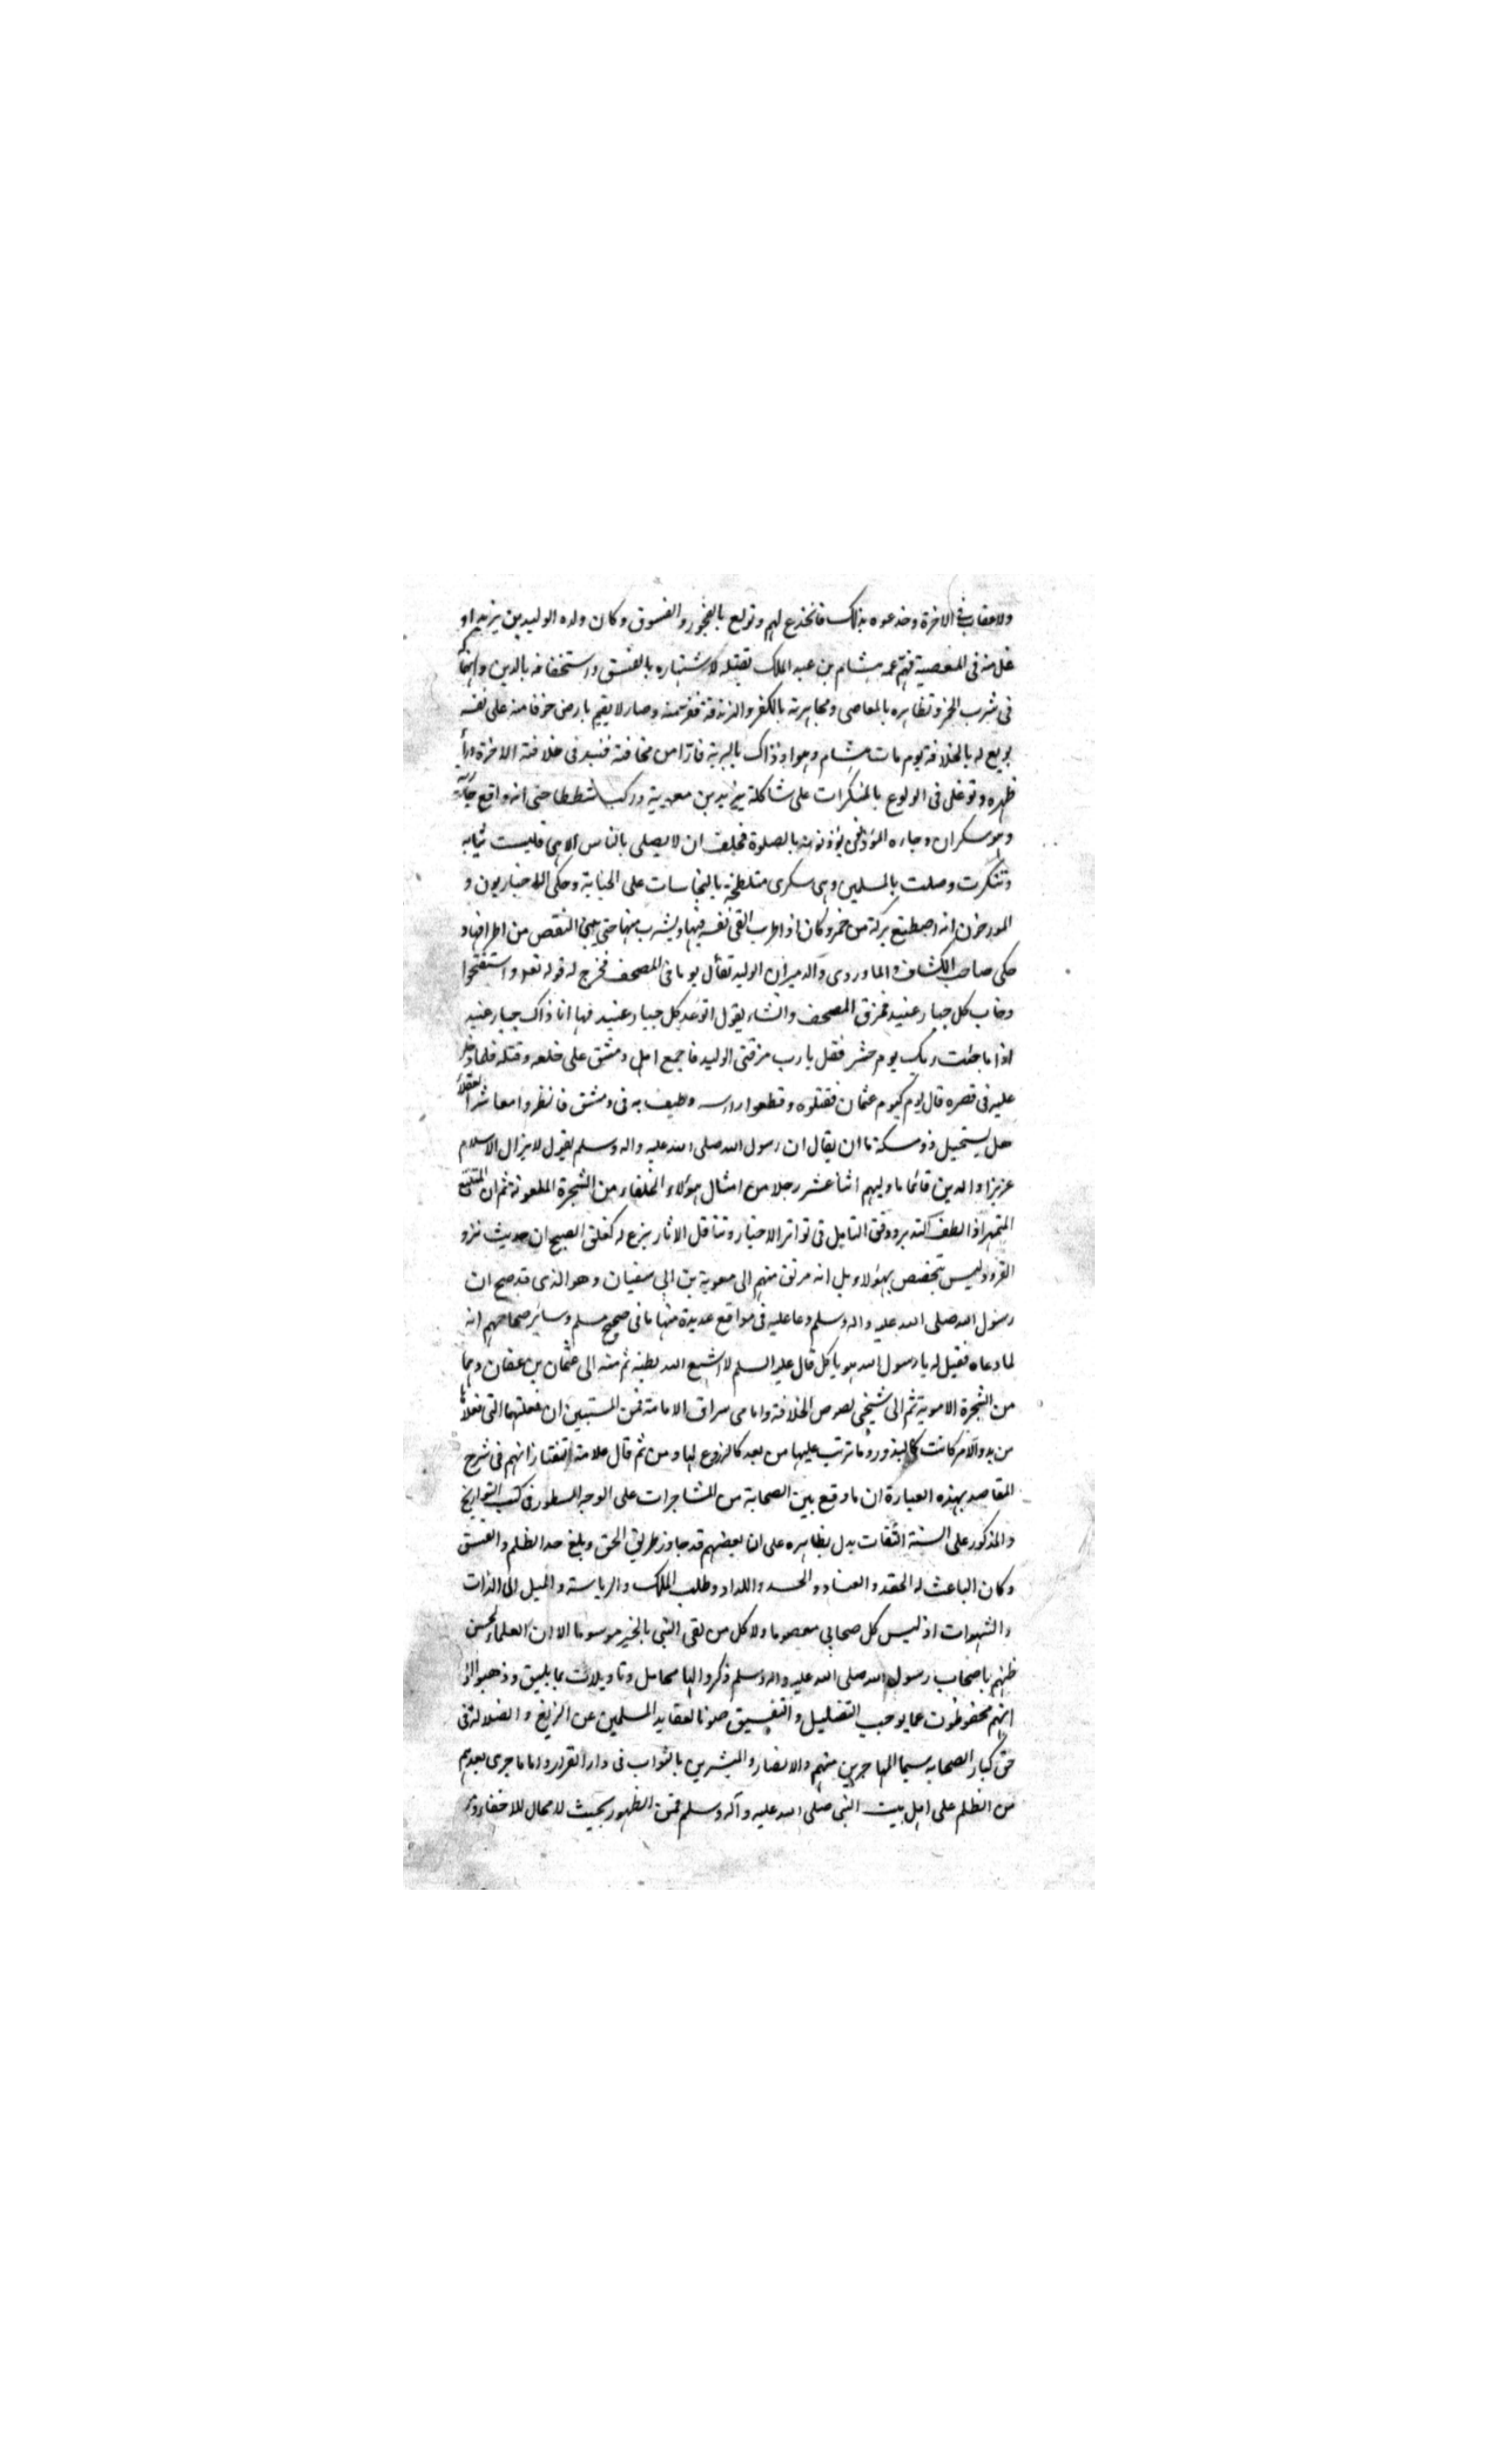 ولاعقاب فى الاخرة وخدعوه بذلك فانخدع لهم وتولع بالفجور والفسوق وكان ولده الوليد بن يزيد او
غل منه فى المعصية فهم عمه هشام بن عبد الملك بقتله لاشتهاره بالفسق واستخفافه بالدين وانهماكه
فى شرب الخمر وتظاهره بالمعاصى ومجاهرته بالكفر والزندقة ففر منه وصار لا يقيم بارض خوفا منه على نفسه
بويع له بالخلافة يوم مات هشام وهو اذ ذاك بالبرية فارا من مخافته فنبذ فى خلافته الاخرة وراء
ظهره وتوغل فى الولوع بالمنكرات على شاكلة يزيد بن معوية وركب شططا حتى انه واقع جارية
وهو سكران وجاءه المؤذنون يؤذنونه بالصلوة فحلف ان لا يصلى بالناس الا هى فلبست ثيابه
وتنكرت وصلت بالمسلمين وهى سكرى متلطخة بالنجاسات على الجنابة وحكى الاخباريون و
المورخون انه اصطنع بركة من خمر وكان اذا طرب القى نفسه فيها ويشرب منها حتى يبين النقص من اطرافها و
حكى صاحب الكشاف والماوردى والدميرى ان الوليد تفأل يوما فى المصحف فخرج له قوله تعالى واستفتحوا
وخاب كل جبار عنيد فمزق المصحف وانشاء يقول اتوعد كل جبار عنيد فها انا ذاك جبار عنيد
اذا ما جئت ربك يوم حشر فقل يا رب مزقنى الوليد فاجمع اهل دمشق على خلعه وقتله فلما دخل
عليه فى قصره قال يوم كيوم عثمان فقتلوه وقطعوا راسه وطيف به فى دمشق فانظروا معاشر العقلاء
هل يستحيل ذو مسكة ما ان يقال ان رسول الله صلى الله عليه واله وسلم يقول لا يزال الاسلام
عزيزا والدين قائما ما وليهم اثنا عشر رجلا من امثال هؤلاء الخلفاء من الشجرة الملعونة ثم ان المتتبع
المتمهر اذا لطف التدبر ودقق التامل فى تواتر الاخبار وتناقل الاثار بزع له كفلق الصبح ان حديث نزو
القرود ليس يتخصص بهؤلاء بل انه مرتق منهم الى معوية بن ابى سفيان وهو الذى قد صح ان
رسول الله صلى الله عليه واله وسلم دعا عليه فى مواقع عديدة منها ما فى صحيح مسلم وسائر صحاحهم انه
لما دعاه فقيل له يا رسول الله هو ياكل قال عليه السلم لا اشبع الله بطنه ثم منه الى عثمان بن عفان وهما
من الشجرة الاموية ثم الى شيخى لصوص الخلافة وامامى سراق الامامة فمن المستبين ان فعلتهما التى فعلاها
من بدو الامر كانت كالبذور وما ترتب عليها من بعد كالزروع لها ومن ثم قال علامة تفتازانهم فى شرح
المقاصد بهذه العبارة ان ما وقع بين الصحابة من المشاجرات على الوجه المسطور فى كتب التواريخ
والمذكور على السنة الثقات يدل بظاهره على ان بعضهم قد جاوز طريق الحق وبلغ حد الظلم والفسق
وكان الباعث له الحقد والعناد والحسد واللداد وطلب الملك والرياسة والميل الى اللذات
والشهوات اذ ليس كل صحابى معصوما ولا كل من لقى النبى بالخير موسوما الا ان العلماء لحسن
ظنهم باصحاب رسول الله صلى الله عليه واله وسلم ذكروا لها محامل وتاويلات بما يليق وذهبوا الى
انهم محفوظون عما يوجب التضليل والتفسيق صونا لعقايد المسلمين عن الزيغ والضلالة فى
حق كبار الصحابه سيما المهاجرين منهم والانصار والمبشرين بالثواب فى دار القرار واما ما جرى بعدهم
من الظلم على اهل بيت النبى صلى الله عليه وآله وسلم فمن الظهور بحيث لا مجال للاخفاء